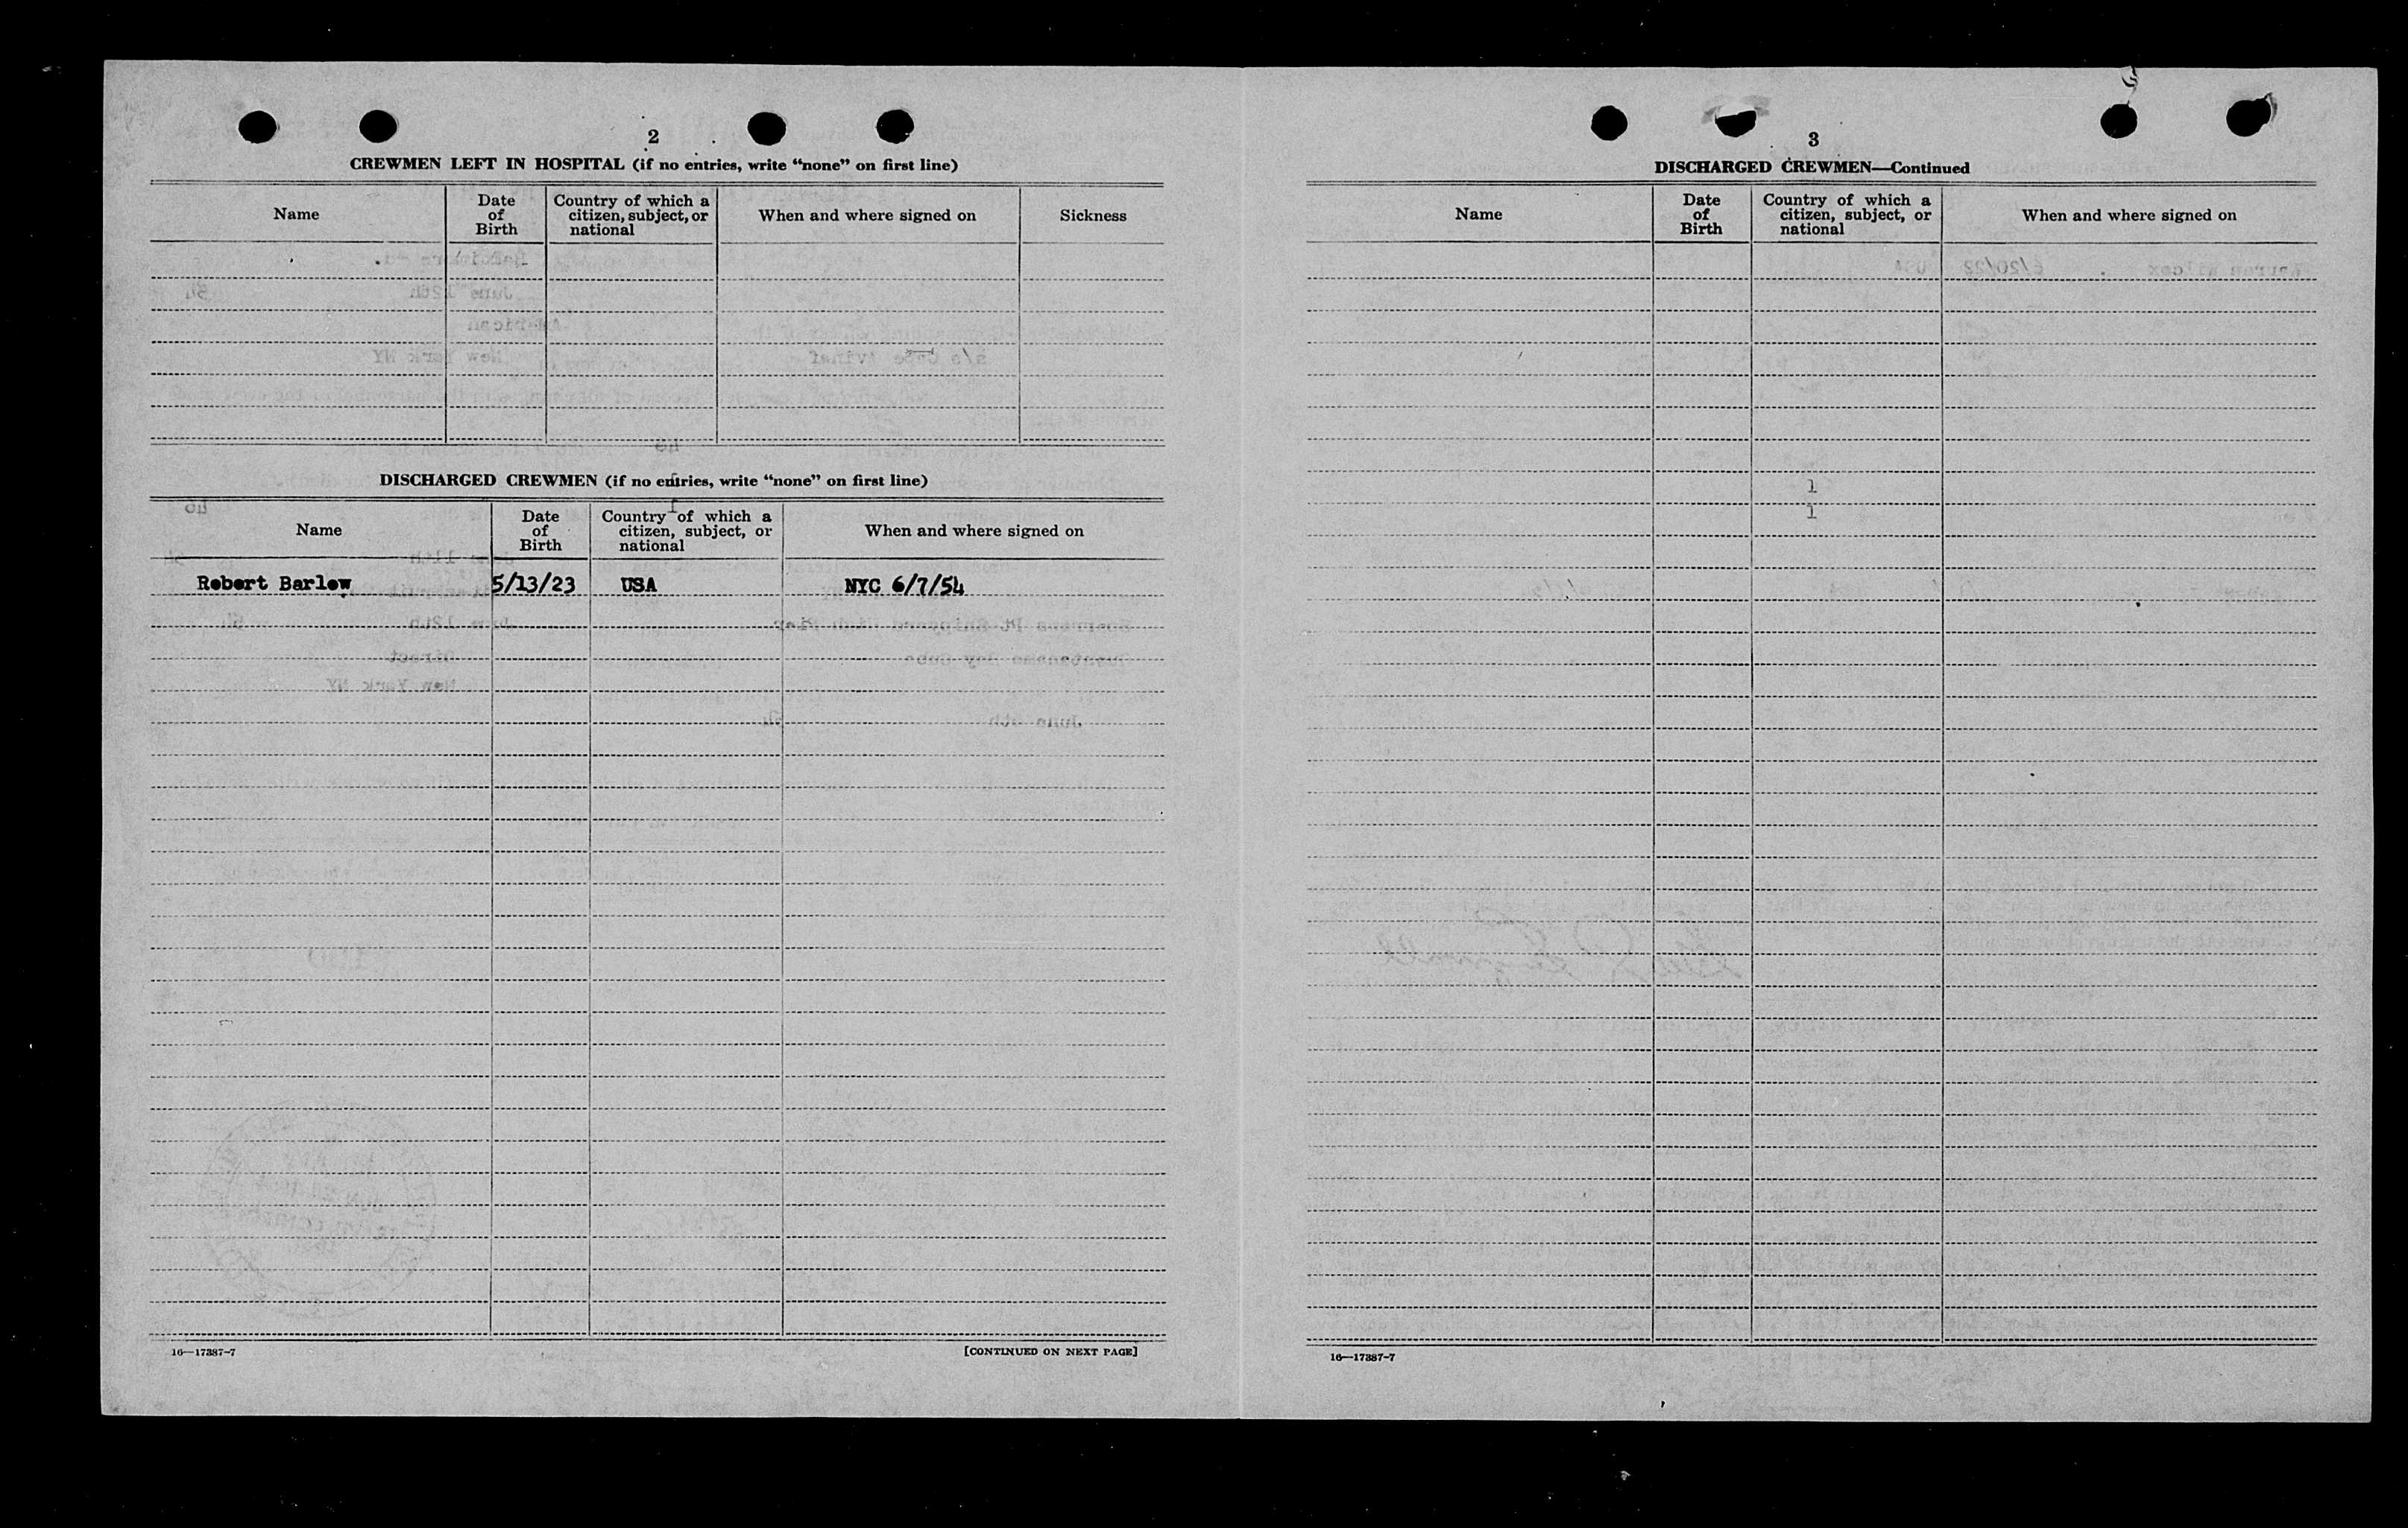 2
CREWMEN LEFT IN HOSPITAL (if no entries, write “none” on first line)
Name
Date of Birth
Country of which a citizen, subject, or national
When and where signed on
Sickness
DISCHARGED CREWMEN (if no entries, write “none” on first line)
Name
Date of Birth
Country of which a citizen, subject, or national
When and where signed on
Robert Barlow 5/13/23 USA NYC 6/7/54
16—17387-7 [CONTINUED ON NEXT PAGE]
3
DISCHARGED CREWMEN—Continued
Name
Date of Birth
Country of which a citizen, subject, or national
When and where signed on
1
1
16—17387-7